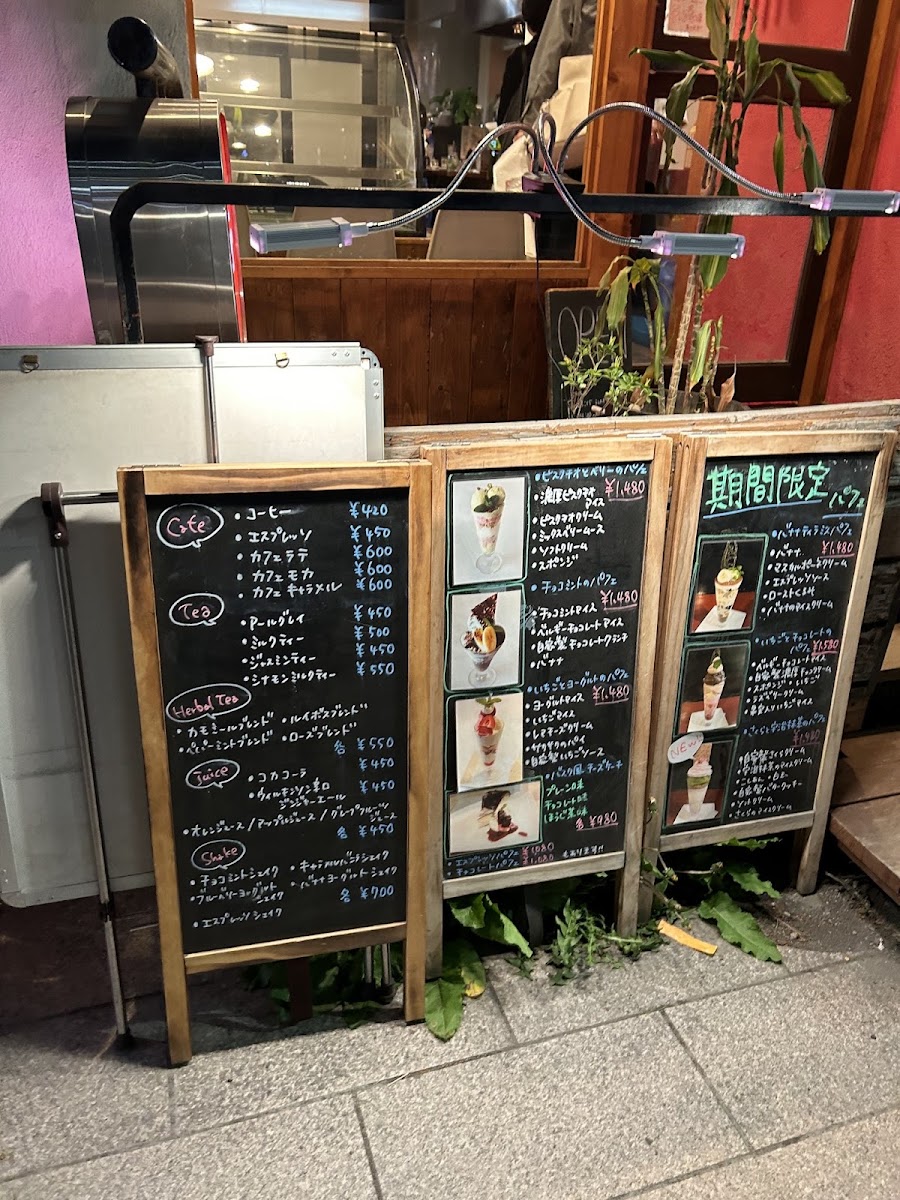 Cafe
・コーヒー ¥420
・エスプレッソ ¥450
・カフェラテ ¥600
・カフェモカ ¥600
・カフェキャラメル ¥600
Tea
・アールグレイ ¥450
・ミルクティー ¥500
・ジャスミンティー ¥450
・シナモンミルクティー ¥550
Herbal Tea
・カモミールブレンド ・ルイボスブレンド
・ペパーミントブレンド ・ローズブレンド
各 ¥550
Juice
・コカコーラ ¥450
・ウィルキンソン辛口 ¥450
ジンジャーエール
・オレンジジュース/アップルジュース/グレープフルーツ
ジュース
各 ¥450
Shake
・チョコミントシェイク ・キャラメルバニラシェイク
・ブルーベリーヨーグルト ・バナナヨーグルトシェイク
シェイク
各 ¥700
・エスプレッソシェイク
・ピスタチオとベリーのパフェ
¥1,480
・濃厚ピスタチオ
アイス
・ピスタチオクリーム
・ミックスベリームース
・ソフトクリーム
・スポンジ
・チョコミントのパフェ
¥1,480
・チョコミントアイス
・ベルギーチョコレートアイス
・自家製チョコレートクランチ
・バナナ
・いちごとヨーグルトのパフェ
¥1,480
・ヨーグルトアイス
・いちごアイス
・レアチーズクリーム
・サクサクのパイ
・自家製いちごソース
・バスク風チーズケーキ
プレーン味
チョコレート味
ほうじ茶味
各 ¥980
・エスプレッソパフェ ¥1,080
・チョコレートパフェ ¥1,080 もあります!!
期間限定
パフェ
・バナナティラミスパフェ
¥1,480
・バナナ
・マスカルポーネクリーム
・エスプレッソソース
・ローストくるみ
・バナナのアイスクリーム
・いちごとチョコレートの
パフェ ¥1,580
・ベルギーチョコレートアイス
・自家製濃厚チョコクリーム
・スポンジ ・いちご
・ラズベリークリーム
・さくらと宇治抹茶のパフェ
¥1,480
NEW
・自家製さくらクリーム
・宇治抹茶のアイスクリーム
・ソフトクリーム
・さくらのアイスクリーム